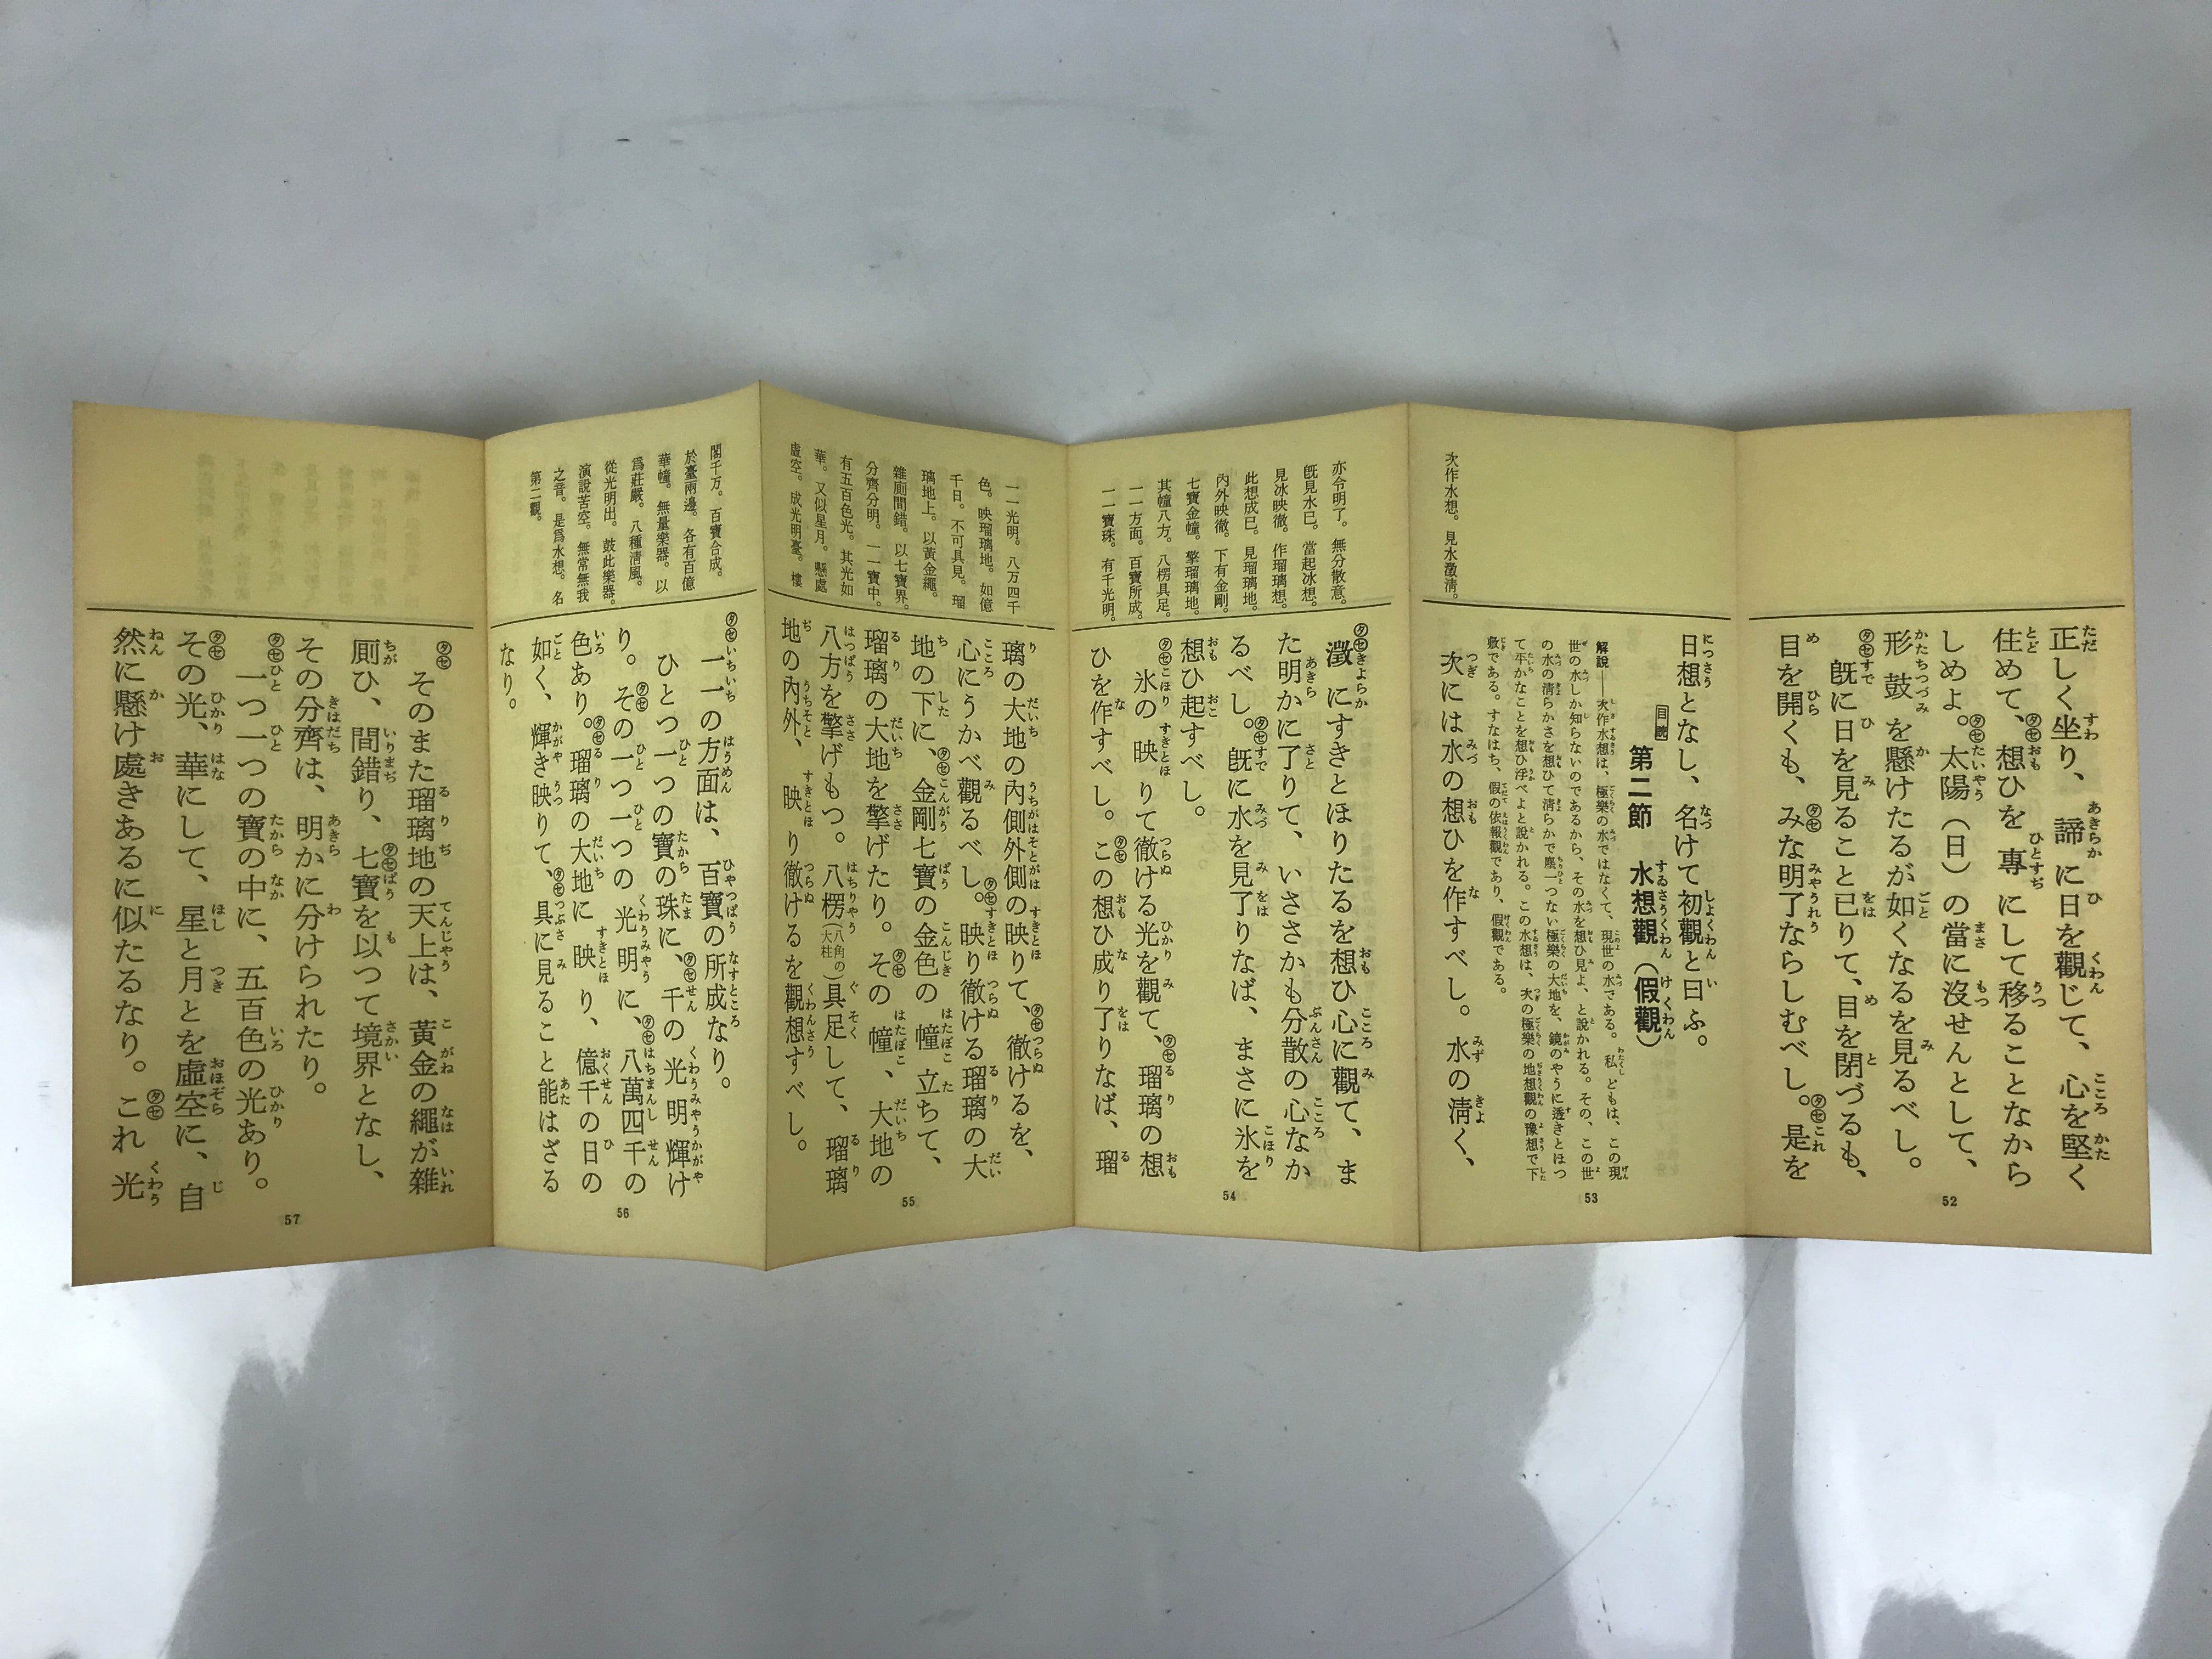 正しく坐り、諦に日を觀じて、心を堅く
住めて、想ひを專にして移ることなから
しめよ。太陽(日)の當に沒せんとして、
形鼓を懸けたるが如くなるを見るべし。
既に日を見ること已りて、目を閉づるも、
目を開くも、みな明了ならしむべし。是を
52
次作水想。見水澂淸。
日想となし、名けて初觀と曰ふ。
目説
第二節 水想觀(假觀)
解說――次作水想は、極樂の水ではなくて、現世の水である。私どもは、この現
世の水しか知らないのであるから、その水を想ひ見よ、と説かれる。その、この世
の水の淸らかさを想ひて淸らかで塵一つない極樂の大地を、鏡のやうに透きとほつ
て平かなことを想ひ浮べよと說かれる。この水想は、次の極樂の地想觀の豫想で下
敷である。すなはち、假の依報觀であり、假觀である。
次には水の想ひを作すべし。水の淸く、
53
亦令明了。無分散意。
旣見水已。當起冰想。
見冰映徹。作瑠璃想。
此想成已。見瑠璃地。
內外映徹。下有金剛。
七寶金幢。擎瑠璃地。
其幢八方。八楞具足。
一一方面。百寶所成。
一一寶珠。有千光明。
澂にすきとほりたるを想ひ心に觀て、ま
た明かに了りて、いささかも分散の心なか
るべし。旣に水を見了りなば、まさに氷を
想ひ起すべし。
氷の映りて徹ける光を觀て、瑠璃の想
ひを作すべし。この想ひ成り了りなば、瑠
54
一一光明。八万四千
色。映瑠璃地。如億
千日。不可具見。瑠
璃地上。以黃金繩。
雜廁間錯。以七寶界。
分齊分明。一一寶中。
有五百色光。其光如
華。又似星月。懸處
虛空。成光明臺。樓
璃の大地の內側外側の映りて、徹けるを、
心にうかべ觀るべし。映り徹ける瑠璃の大
地の下に、金剛七寶の金色の幢立ちて、
瑠璃の大地を擎げたり。その幢、大地の
八方を擎げもつ。八楞(八角の大柱)具足して、瑠璃
地の內外、映り徹けるを觀想すべし。
55
閣千万。百寶合成。
於臺兩邊。各有百億
華幢。無量樂器。以
爲莊嚴。八種淸風。
從光明出。鼓此樂器。
演說苦空。無常無我
之音。是爲水想。名
第二觀。
一一の方面は、百寶の所成なり。
ひとつ一つの寶の珠に、千の光明輝け
り。その一つ一つの光明に、八萬四千の
色あり。瑠璃の大地に映り、億千の日の
如く、輝き映りて、具に見ること能はざる
なり。
56
そのまた瑠璃地の天上は、黃金の繩が雜
厠ひ、間錯り、七寶を以つて境界となし、
その分齊は、明かに分けられたり。
一つ一つの寶の中に、五百色の光あり。
その光、華にして、星と月とを虛空に、自
然に懸け處きあるに似たるなり。これ光
57